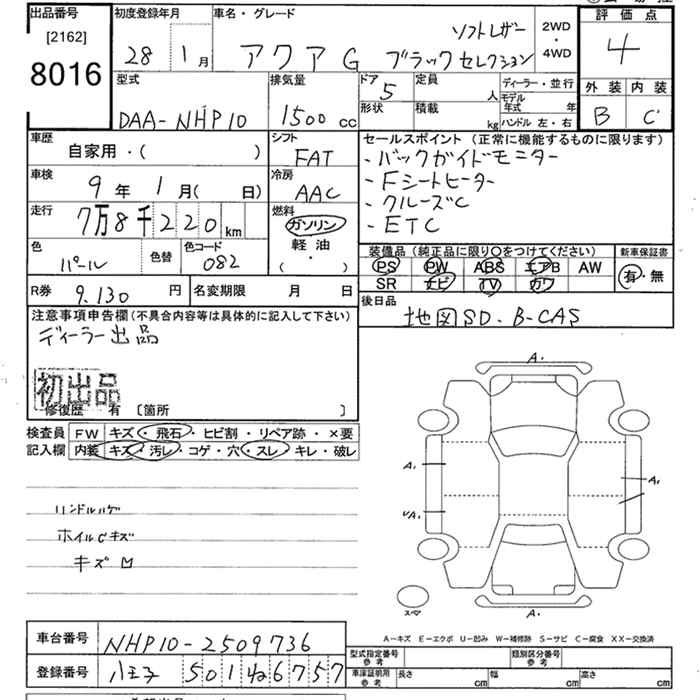 出品番号
[2162]
8016
初度登録年月
28 1 月
車名・グレード
ソフトレザー
アクア G ブラックセレクション
2WD
・
4WD
評価点
4
外装 内装
B C
型式
DAA-NHP10
排気量
1500 cc
ドア
5
形状
定員
人
積載
kg
ディーラー・並行
モデル年式 年
ハンドル 左・右
車歴
自家用・( )
シフト
FAT
車検
9 年 1 月( 日)
冷房
AAC
走行
7万8千220 km
燃料
ガソリン
軽油
( ・ )
色
パール
色替
色コード
082
セールスポイント(正常に機能するものに限ります)
-バックガイドモニター
-Fシートヒーター
-クルーズC
-ETC
装備品(純正品に限り○をつけてください)
PS PW ABS エアB AW
SR ナビ TV カワ
新車保証書
有・無
R券 9.130 円
名変期限 月 日
後日品
地図SD. B-CAS
注意事項申告欄(不具合内容等は具体的に記入して下さい)
ディーラー出品
初出品
修復歴 有 〔箇所 〕
検査員
記入欄
FW キズ・飛石・ヒビ割・リペア跡・×要
内装 キズ・汚レ・コゲ・穴・スレ・キレ・破レ
ハンドルハゲ
ホイルCキズ
キズ
A.
A.
A.
A.
スペア
A-キズ E-エクボ U-凹み W-補修跡 S-サビ C-腐食 XX-交換済
車台番号 NHP10-2509736
登録番号 八王子 501 ね 6757
型式指定番号
参考
類別区分番号
参考
車庫証明
参考
長さ cm 幅 cm 高さ cm